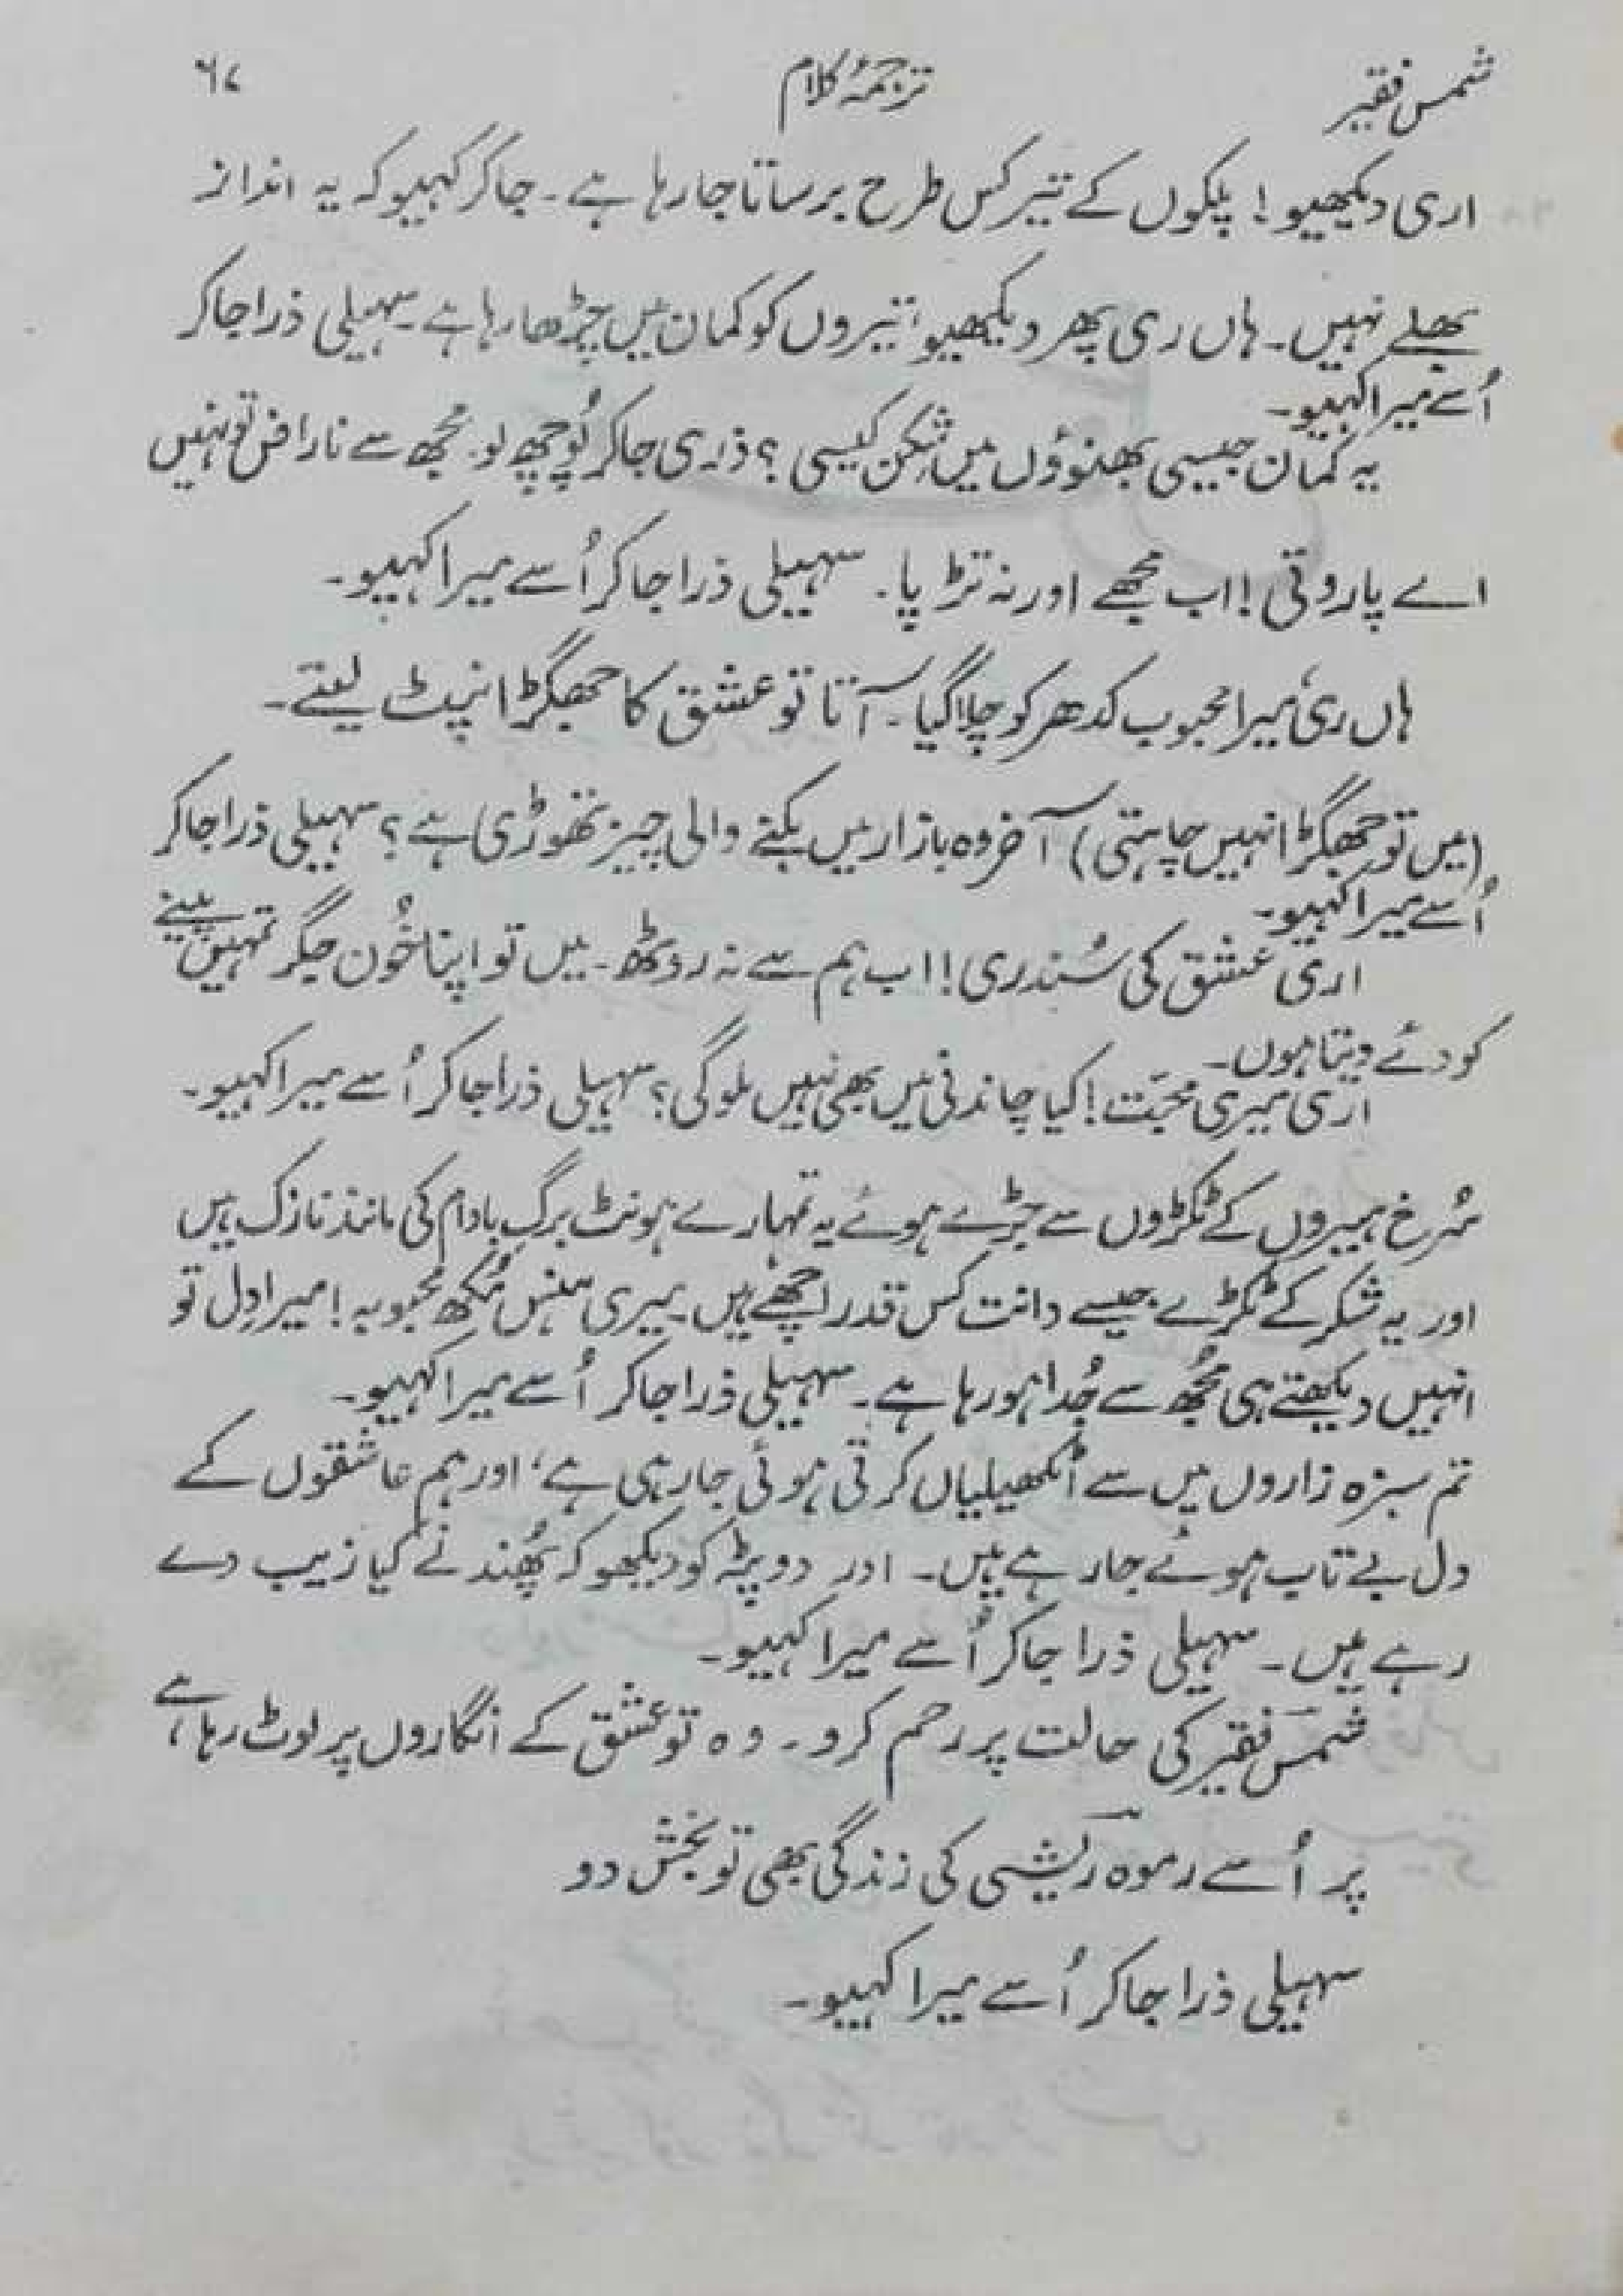 شمس فقیر
ترجمۂ کلام
٦٧
اری دیکھیو! پلکوں کے تیر کس طرح برساتا جا رہا ہے۔ جا کر کہیو کہ یہ انداز
بھلے نہیں۔ ہاں ری پھر دیکھیو، تیروں کو کمان میں چڑھا رہا ہے۔ سہیلی ذرا جا کر
اُسے میرا کہیو۔
یہ کمان جیسی بھنوؤں میں شکن کیسی؟ ذری جا کر پُوچھ لو۔ مجھ سے ناراض تو نہیں
اے پاروتی! اب مجھے اور نہ تڑپا۔ سہیلی ذرا جا کر اُسے میرا کہیو۔
ہاں ری، میرا محبوب کدھر کو چلا گیا۔ آتا تو عشق کا جھگڑا نپٹ لیتے۔
(میں تو جھگڑا نہیں چاہتی) آخر وہ بازار میں بکنے والی چیز تھوڑی ہے؟ سہیلی ذرا جا کر
اُسے میرا کہیو۔
اری عشق کی سُندری! اب ہم سے نہ روٹھ۔ میں تو اپنا خُون جگر تمہیں پینے
کو دئے دیتا ہوں۔
اری میری محبّت! کیا چاندنی میں بھی نہیں ملو گی؟ سہیلی ذرا جا کر اُسے میرا کہیو۔
سُرخ ہیروں کے ٹکڑوں سے جڑے ہوئے یہ تمہارے ہونٹ برگِ بادام کی مانند نازک ہیں
اور یہ شکر کے ٹکڑے جیسے دانت کس قدر اچھے ہیں۔ میری ہنس مُکھ محبوبہ! میرا دِل تو
انہیں دیکھتے ہی مجُھ سے جُدا ہو رہا ہے۔ سہیلی ذرا جا کر اُسے میرا کہیو۔
تم سبزہ زاروں میں سے اٹکھیلیاں کرتی ہوئی جا رہی ہے، اور ہم عاشقوں کے
دل بے تاب ہوئے جا رہے ہیں۔ اور دوپٹہ کو دیکھو کہ پُھندنے کیا زیب دے
رہے ہیں۔ سہیلی ذرا جا کر اُسے میرا کہیو۔
شمس فقیر کی حالت پر رحم کرو۔ وہ تو عشق کے انگاروں پر لوٹ رہا ہے،
پر اُسے رموہ ریشی کی زندگی بھی تو بخش دو
سہیلی ذرا جا کر اُسے میرا کہیو۔